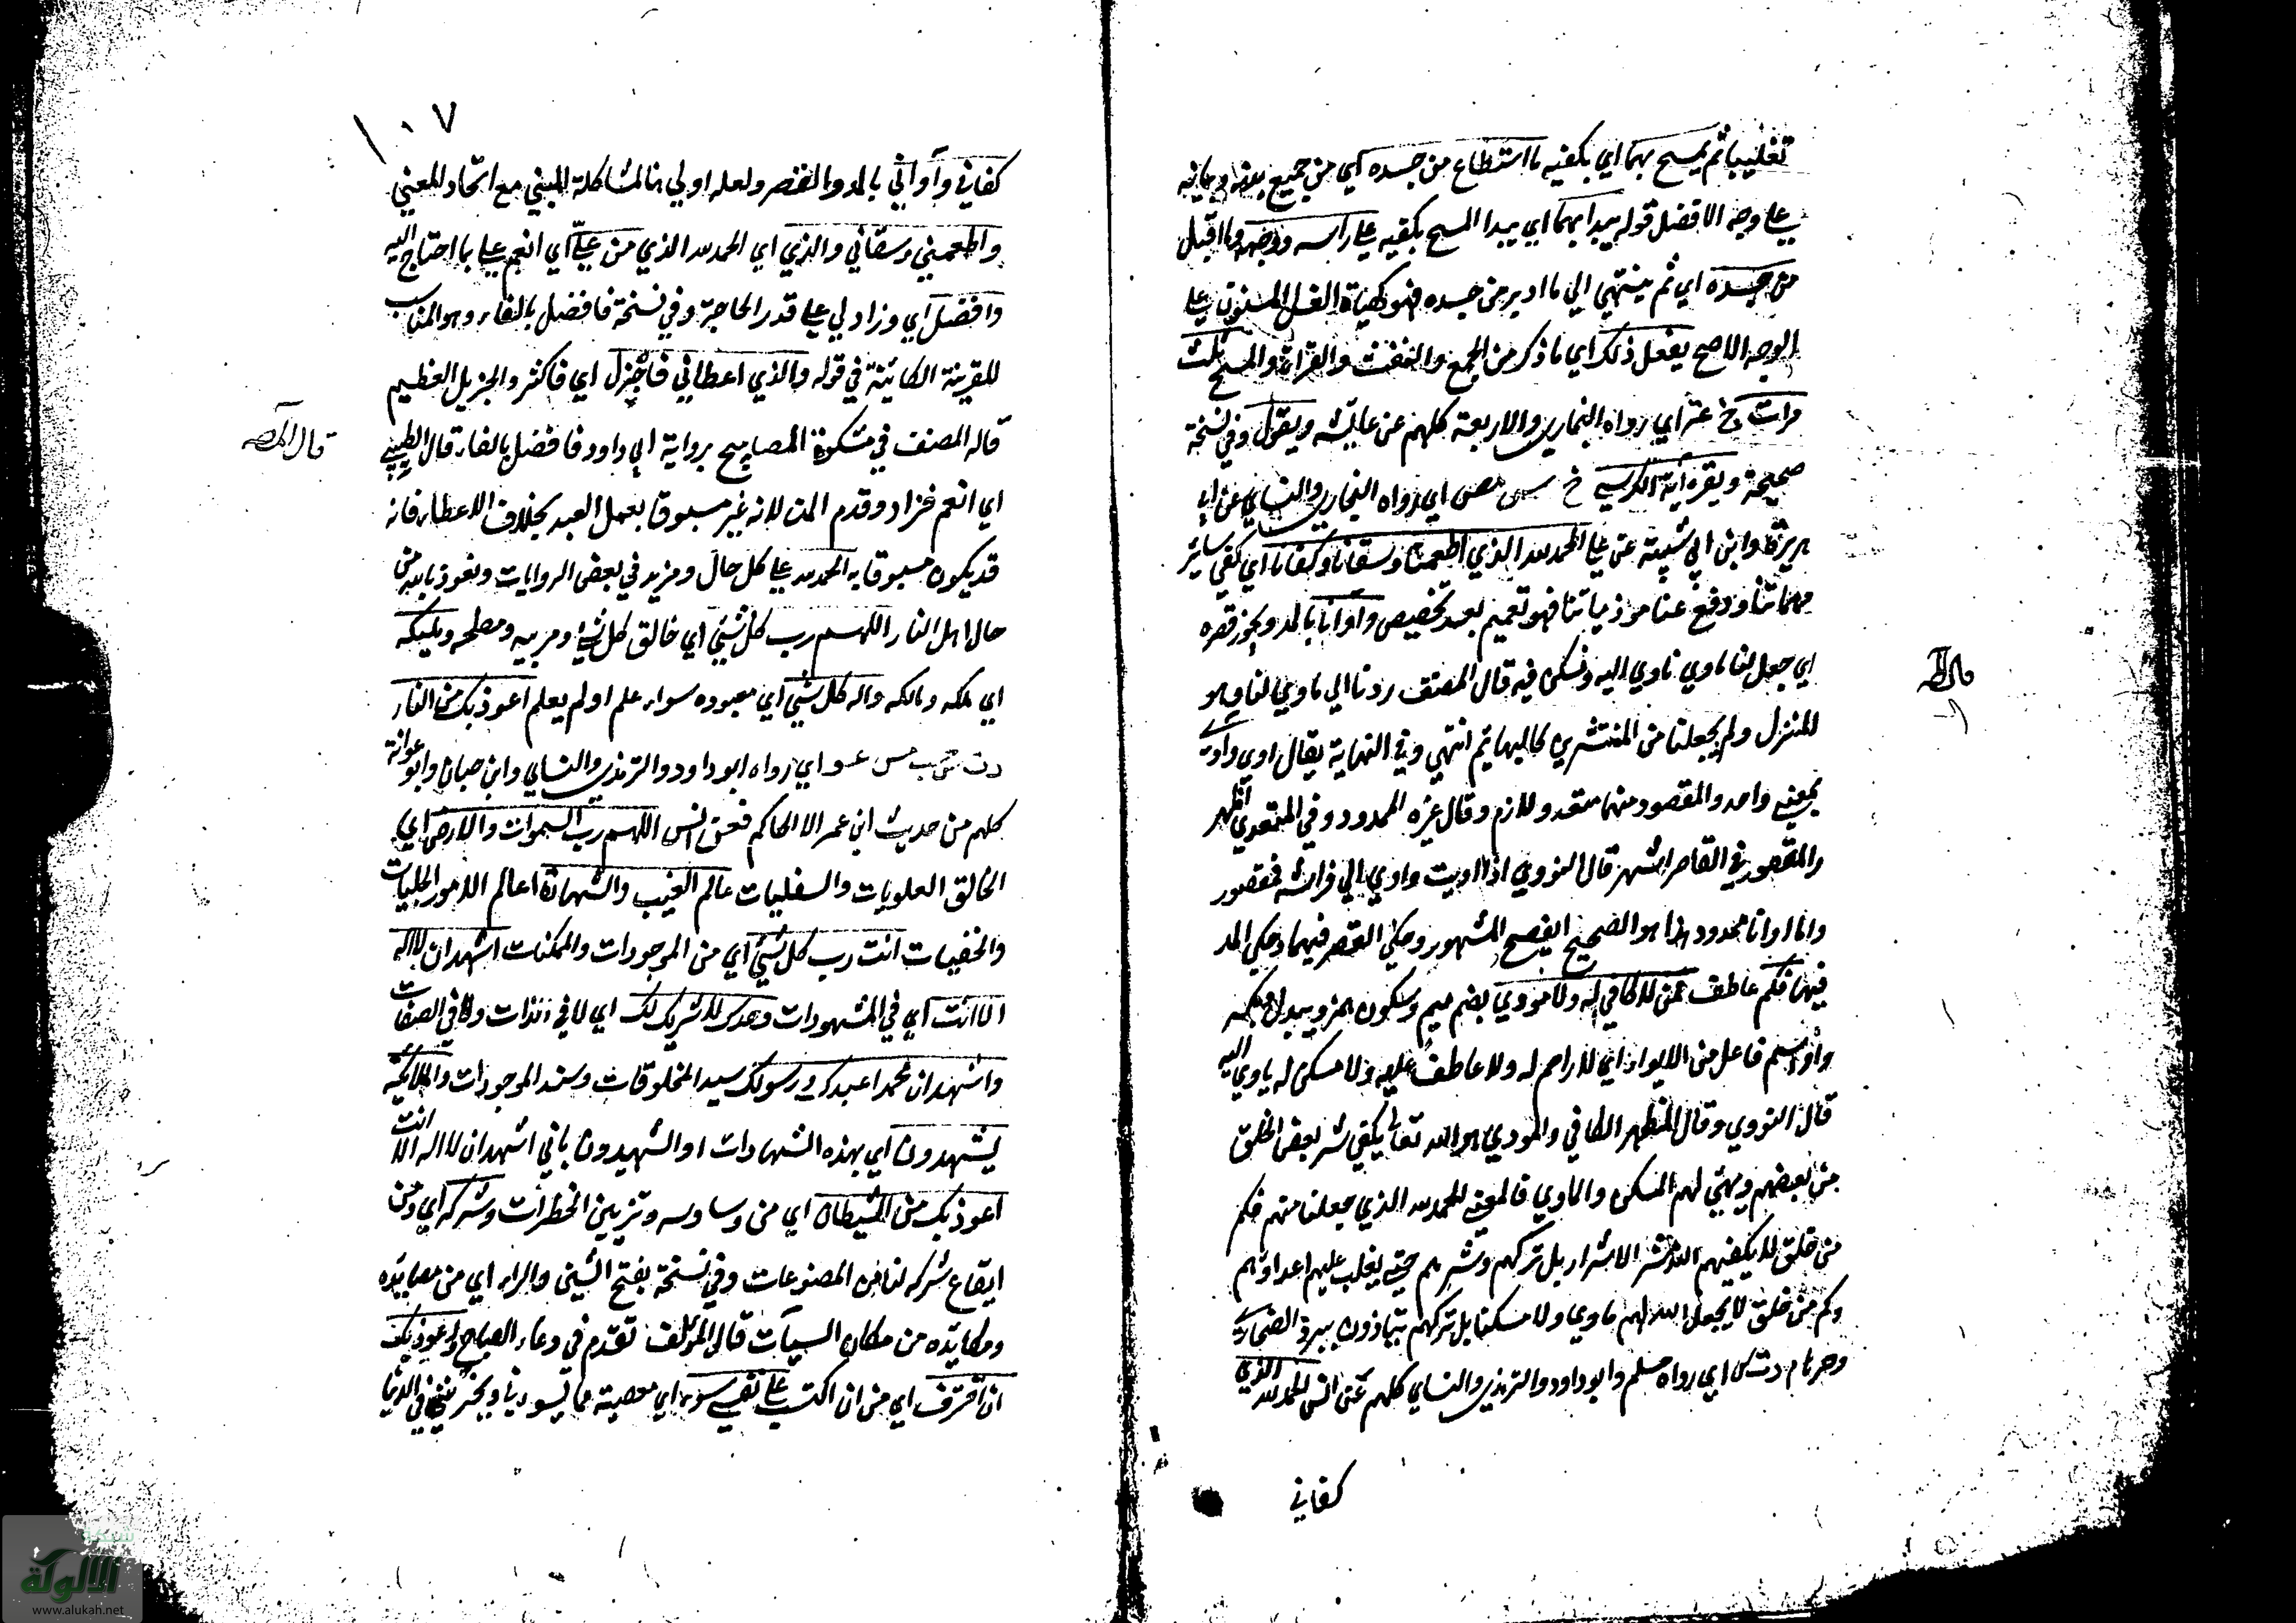 تغليبا ثم يمسح بهما اي بكفيه ما استطاع من جسده اي من جميع بدنه
علي وجه الافضل قوله يبدا بهما اي يبدا المسح بكفيه علي راسه ووجهه وما اقبل
من جسده اي ثم ينتهي الي ما ادبر من جسده فهو كهياة الغسل المسنون علي
الوجه الاصح يفعل ذلك اي ما ذكر من الجمع والنفث والقراة والمسح ثلث
مرات خ عه اي رواه البخاري والاربعة كلهم عن عايشه ويقول وفي نسخة
صحيحة ويقره اية الكرسي خ س مص اي رواه البخاري والنساي عن ابي
هريرة وابن ابي شيبة عن علي الحمد لله الذي اطعمنا وسقانا وكفانا اي كفي سائر
مهماتنا ودفع عنا موذياتنا فهو تعميم بعد تخصيص واوانا بالمد ويجوز قصره
اي جعل لنا ماوي ناوي اليه ونسكن فيه قال المصنف ردنا الي ماوي لنا وهو
المنزل ولم يجعلنا من المنتشرين كالبهايم انتهي وفي النهاية يقال اوي واوي
بمعني واحد والمقصود منهما متعد ولازم وقال غيره الممدود وفي المتعدي اظهر
والمقصور في القاصر اشهر قال النووي اذا اويت واوي الي فراشه فمقصور
واما اوانا فممدود هذا هو الصحيح الفصيح المشهور وحكي القصر فيهما وحكي المد
فيهما فكم عاطف ممن لا كافي له ولا مودي بضم ميم وسكون همز ويبدل
واو اسم فاعل من الايواء اي لا راحم له ولا عاطف عليه ولا مسكن له ياوي اليه
قال النووي وقال المظهر الكافي والمودي هو الله تعالي يكفي شر بعض الخلق
من بعضهم ويهيي لهم المسكن والماوي فالمعني الحمد لله الذي جعلنا منهم فكم
من خلق لا يكفيهم الله شر الاشرار بل تركهم وشرهم حتي يغلب عليهم اعداوهم
وكم من خلق لا يجعل الله لهم ماوي ولا مسكنا بل تركهم يتاذون ببرد الصحاري
وحرها م د ت س اي رواه مسلم وابو داود والترمذي والنساي كلهم عن انس الحمد لله الذي
كفاني
١٠٧
كفاني وآواني بالمد والقصر ولعله اولي هنا لمشاكلة المبني مع اتحاد المعني
واطعمني وسقاني والذي اي الحمد لله الذي من علي اي انعم علي بما احتاج اليه
وافضل اي وزاد لي علي قدر الحاجة وفي نسخة فافضل بالفاء وهو المناسب
للقرينة الكائنة في قوله والذي اعطاني فاجزل اي فاكثر والجزيل العظيم
قاله المصنف في مشكوة المصابيح برواية ابي داود فافضل بالفاء قال الطيبي
اي انعم فزاد وقدم المن لانه غير مسبوق بعمل العبد بخلاف الاعطاء فانه
قد يكون مسبوقا به الحمد لله علي كل حال ومزيد في بعض الروايات ونعوذ بالله من
حال اهل النار اللهم رب كل شيي اي خالق كل شيء ومربيه ومصلحه ومليكه
اي ملكه ومالكه واله كل شيي اي معبوده سواء علم او لم يعلم اعوذ بك من النار
د ت حب مس عو اي رواه ابو داود والترمذي والنساي وابن حبان وابو عوانة
كلهم من حديث ابن عمر الا الحاكم فعن انس اللهم رب السموات والارض اي
الخالق العلويات والسفليات عالم الغيب والشهادة اعالم الامور الجليات
والخفيات انت رب كل شيئ اي من الموجودات والممكنات اشهد ان لا اله
الا انت اي في المشهودات وحدك لا شريك لك اي لا في الذات ولا في الصفات
واشهد ان محمدا عبدك ورسولك سيد المخلوقات وسند الموجودات والملائكة
يشهدون اي بهذه الشهادات او الشهيدون باني اشهد ان لا اله الا انت
اعوذ بك من الشيطان اي من وساوسه وتزيين الخطرات وشركه اي ومن
ايقاع شركه لنا من المصنوعات وفي نسخة بفتح الشين والراء اي من مصايده
ومكايده من مكان السيآت قال المولف تقدم في دعاء الصباح واعوذ بك
ان اقترف اي من ان اكتسب علي نفسي سوءا اي معصية مما يسودينا في الدنيا